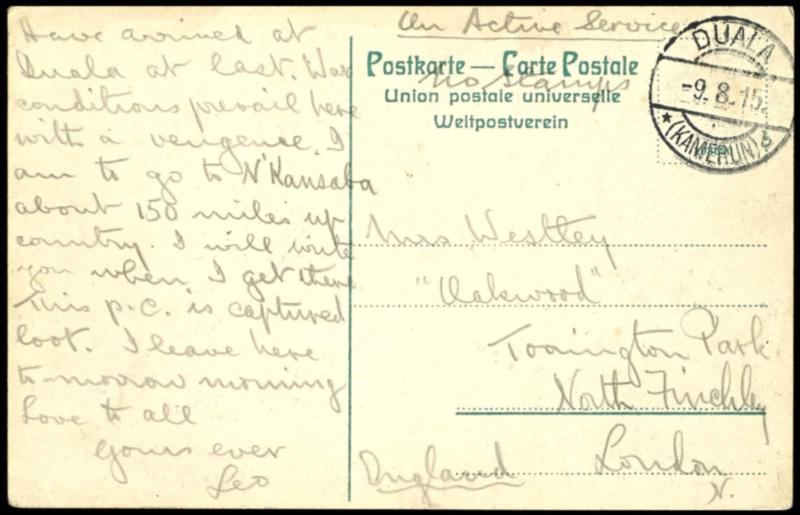 Have arrived at
Duala at last. War
conditions prevail here
with a vengence. I
am to go to N'Kansaba
about 150 miles up
country. I will write
you when I get there
This p.c. is captured
loot. I leave here
to-morrow morning
Love to all
Yours ever
Leo
On Active Service
Postkarte — Carte Postale
No Stamps
Union postale universelle
Weltpostverein
DUALA
-9.8.15.
* (KAMERUN) *
Mrs Westley
"Oakwood"
Torrington Park
North Finchley
London
N.
England